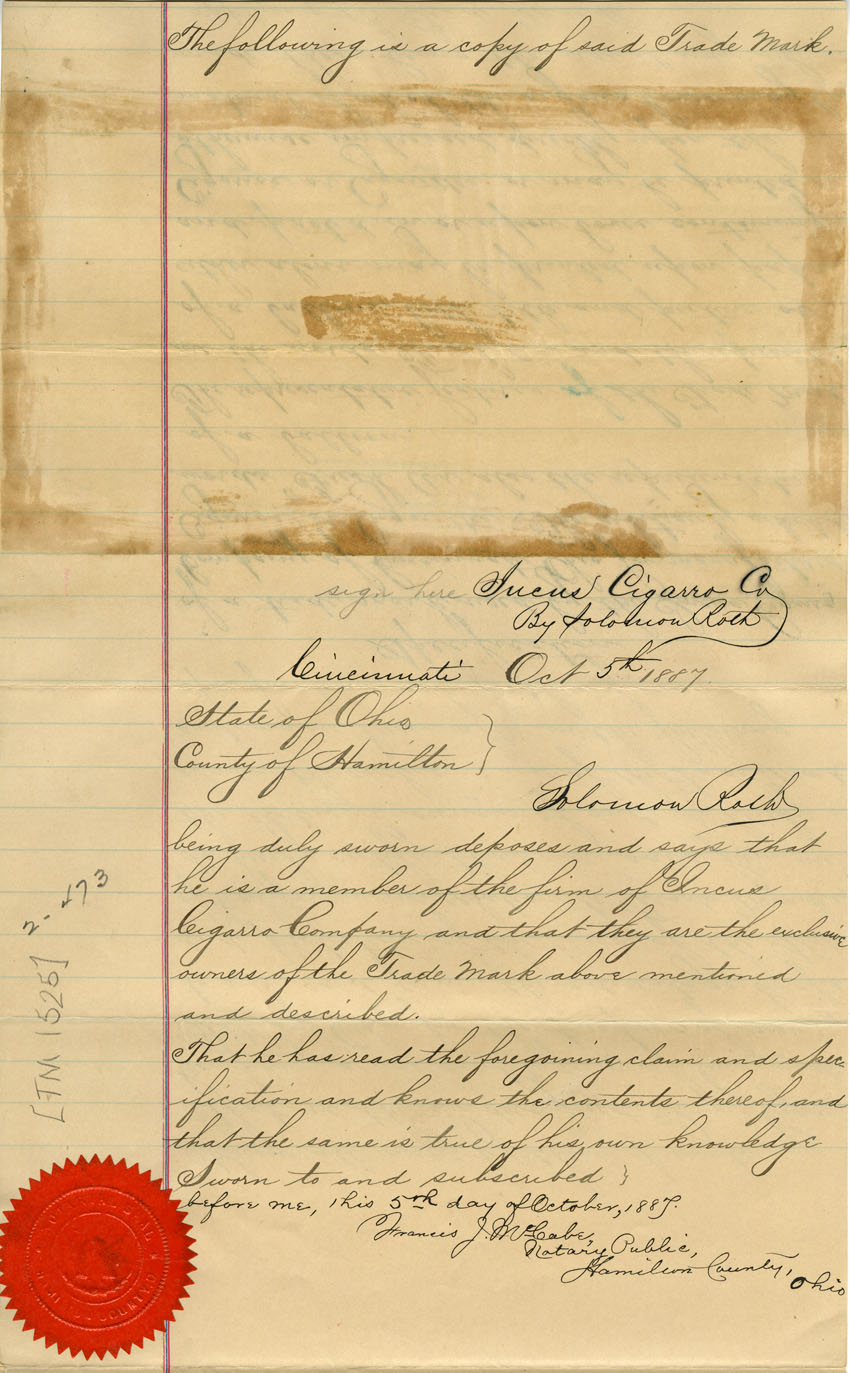 The following is a copy of said Trade Mark.
sign here Incus Cigarro Co
By Solomon Roth
Cincinnati Oct 5th 1887.
State of Ohio
County of Hamilton }
Solomon Roth
being duly sworn deposes and says that
he is a member of the firm of Incus
Cigarro Company and that they are the exclusive
owners of the Trade Mark above mentioned
and described.
That he has read the foregoining claim and spec-
ification and knows the contents thereof, and
that the same is true of his own knowledge
Sworn to and subscribed }
before me, this 5th day of October, 1887.
Francis J. McCabe,
Notary Public,
Hamilton County, Ohio
2-473
[TM 1525]